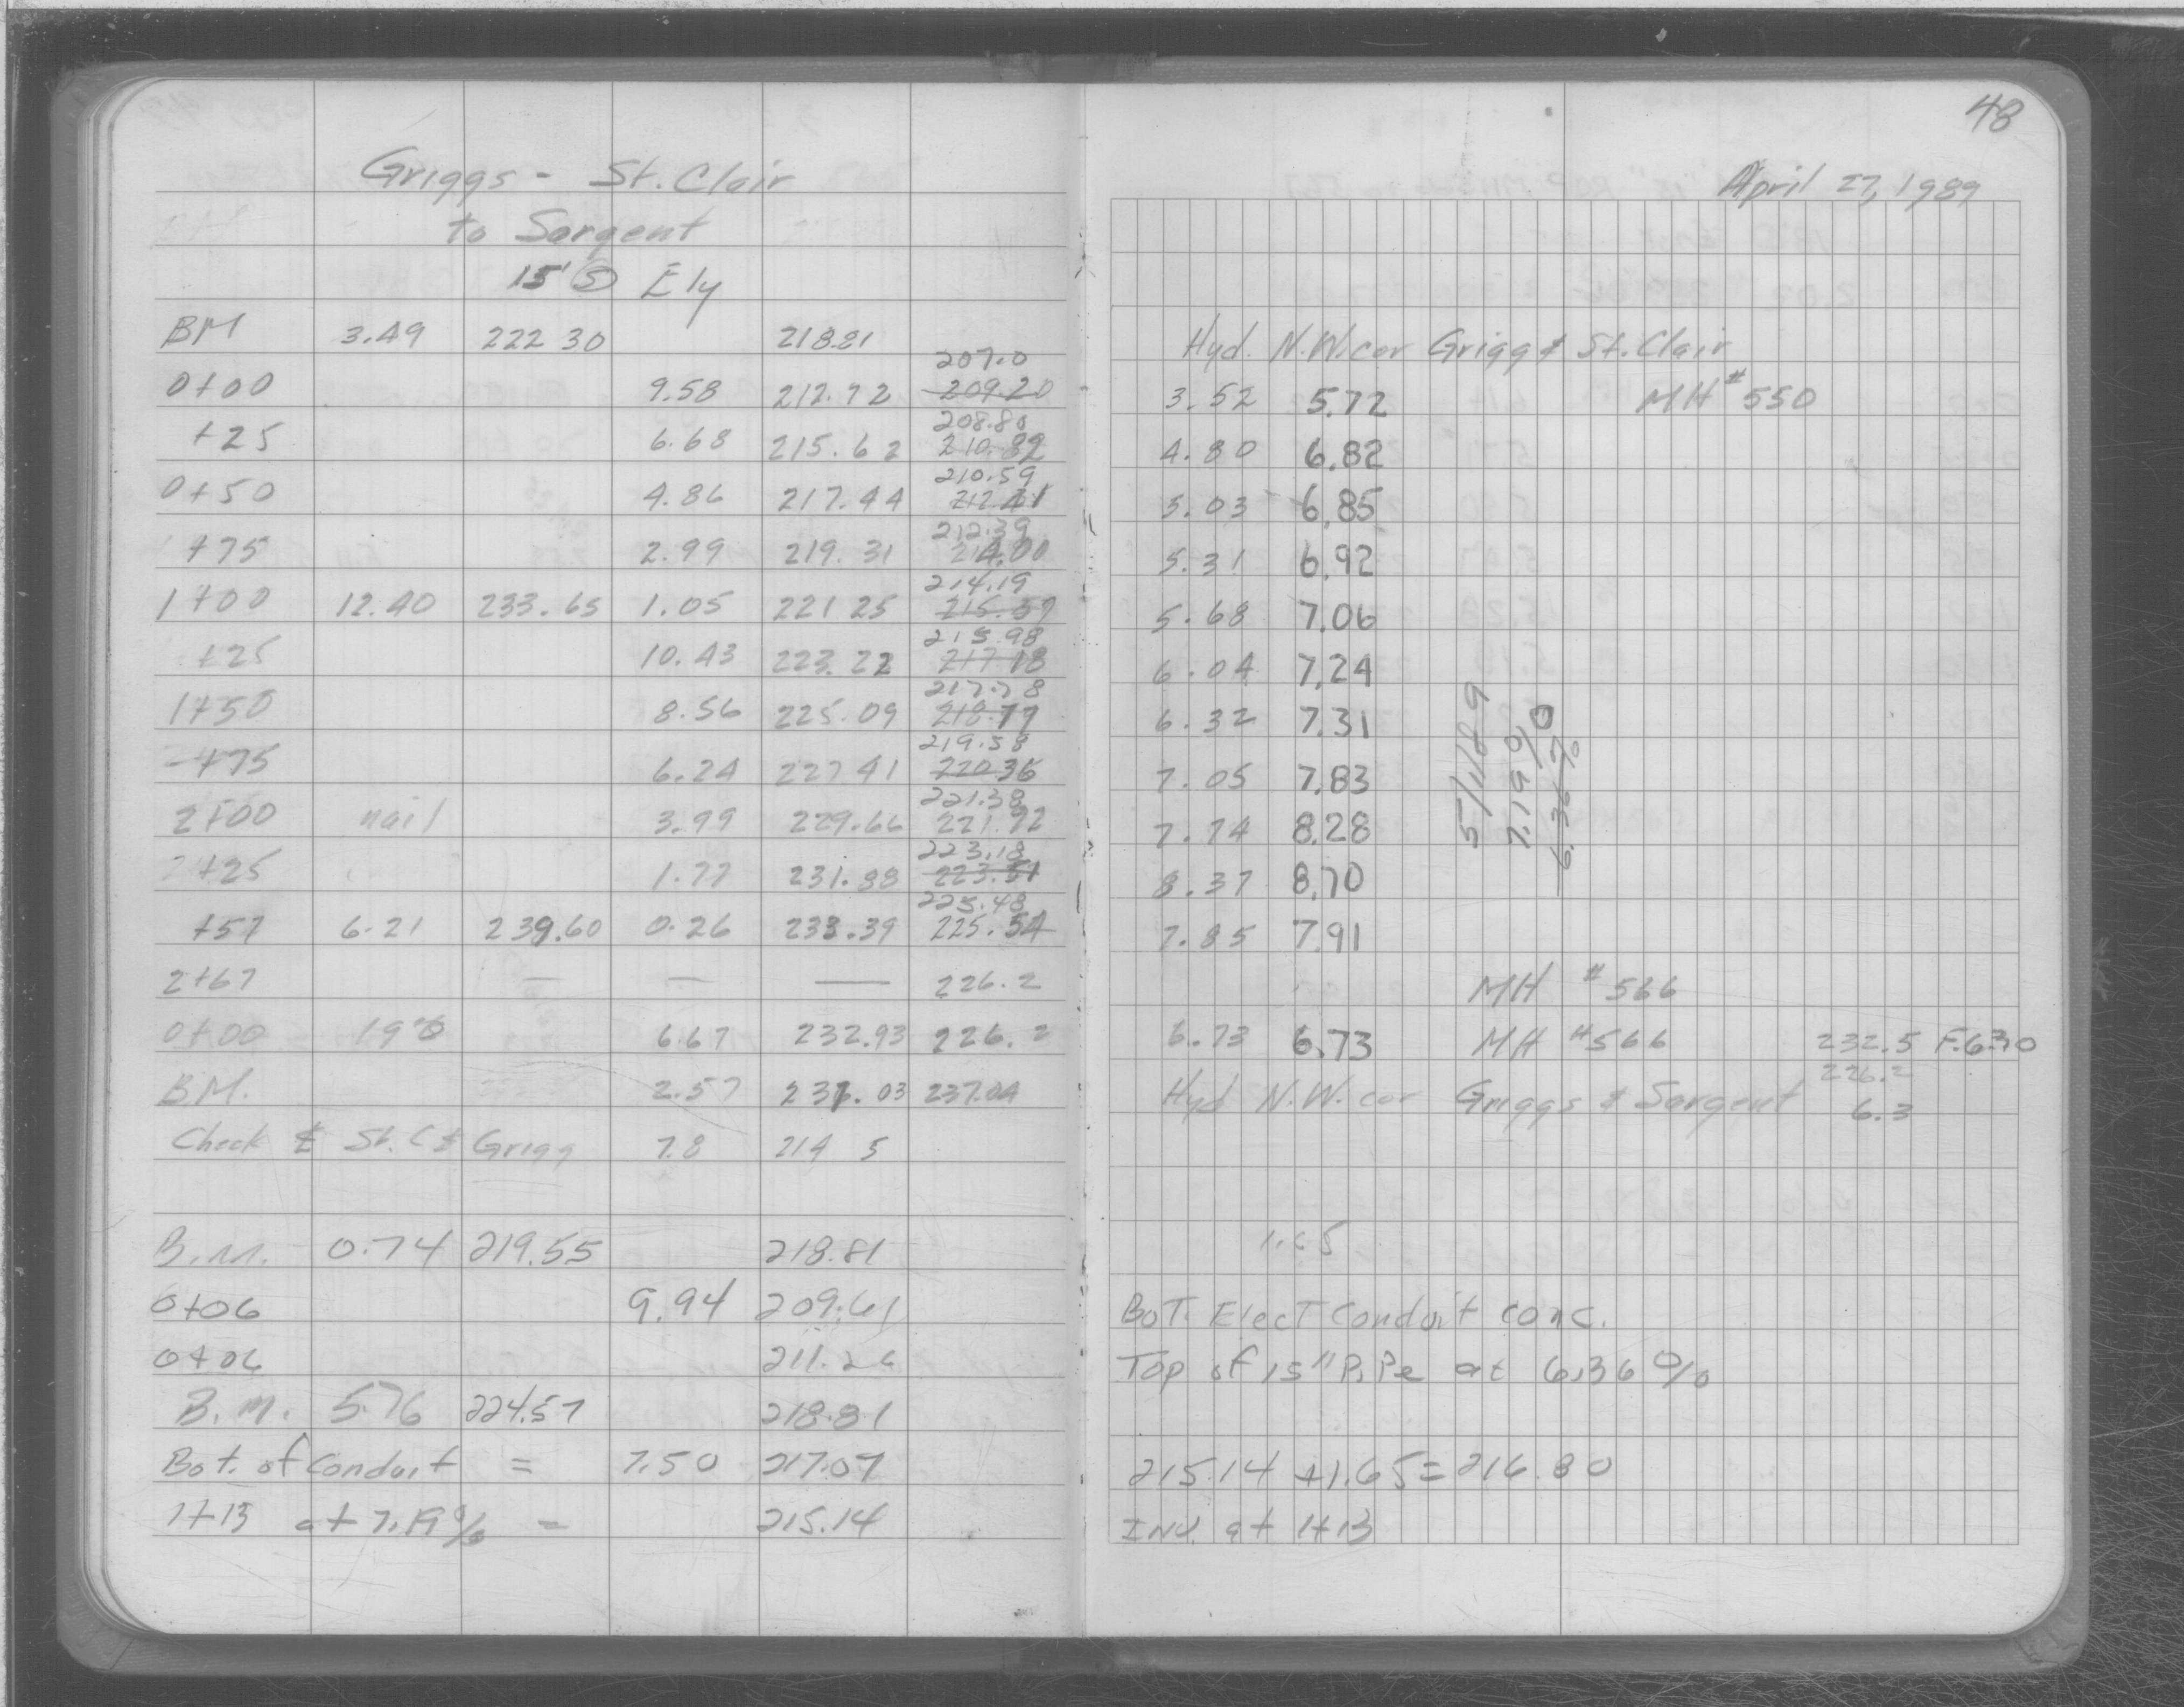 48
Griggs - St. Clair
to Sargent
15' Ⓢ Ely
April 27, 1989
BM 3.49 222 30 218.81 Hyd. N.W. cor Grigg & St. Clair
207.0
0+00 9.58 212.72 209.20 3.52 5.72 MH #550
208.80
+25 6.68 215.62 210.82 4.80 6.82
210.59
0+50 4.86 217.44 212.41 5.03 6.85
212.39
+75 2.99 219.31 214.00 5.31 6.92
214.19
1+00 12.40 233.65 1.05 221 25 215.59 5.68 7.06
215.98
+25 10.43 223.22 217.18 6.04 7.24
217.78
1+50 8.56 225.09 218.77 6.32 7.31
219.58
+75 6.24 227 41 220.36 7.05 7.83
221.38
2+00 nail 3.99 229.66 221.92 7.74 8.28
223.18
+25 1.77 231.88 223.51 8.37 8.70
225.48
+57 6.21 239.60 0.26 233.39 225.54 7.85 7.91
5/1/89
7.19%
6.36%
2+67 — — — 226.2 MH #566
0+00 6.67 232.93 226.2 6.73 6.73 MH #566 232.5 F.6.30
226.2
B.M. 2.57 237.03 237.04 Hyd N.W. cor Griggs & Sargent 6.3
Check ₵ St. C & Grigg 7.8 214 5
B.M. 0.74 219.55 218.81 1.65
0+06 9.94 209.61 Bot. Elect Conduit conc.
0+06 211.26 Top of 15" Pipe at 6.36%
B.M. 5.76 224.57 218.81
Bot. of Conduit = 7.50 217.07 215.14 +1.65 = 216.80
1+13 at 7.19% = 215.14 INV. at 1+13